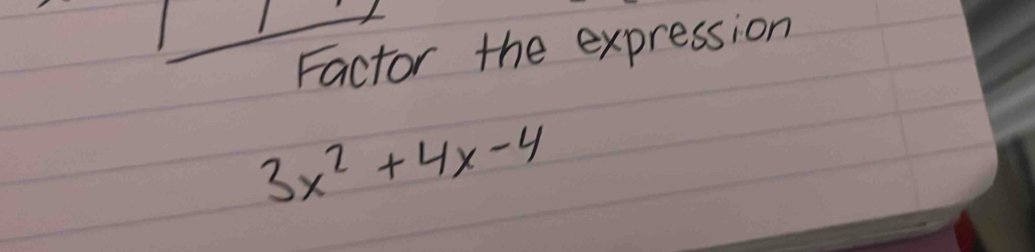 Factor the expression
3x² + 4x - 4